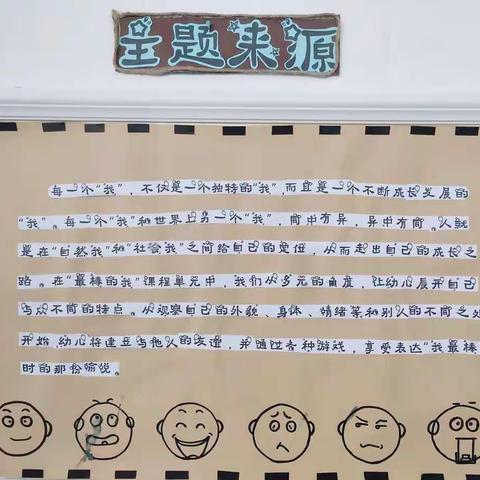 主题来源
每一个“我”，不仅是一个独特的“我”，而且是一个不断成长发展的
“我”。每一个“我”和世界上另一个“我”，同中有异，异中有同。人就
是在“自然我”和“社会我”之间给自己的定位，从而走出自己的成长之
路。在“最棒的我”课程单元中，我们从多元的角度，让幼儿展开自己
与众不同的特点。从观察自己的外貌、身体、情绪等和别人的不同之处
开始，幼儿将建立与他人的友谊，并通过各种游戏，享受表达“我最棒
时的那份愉悦。